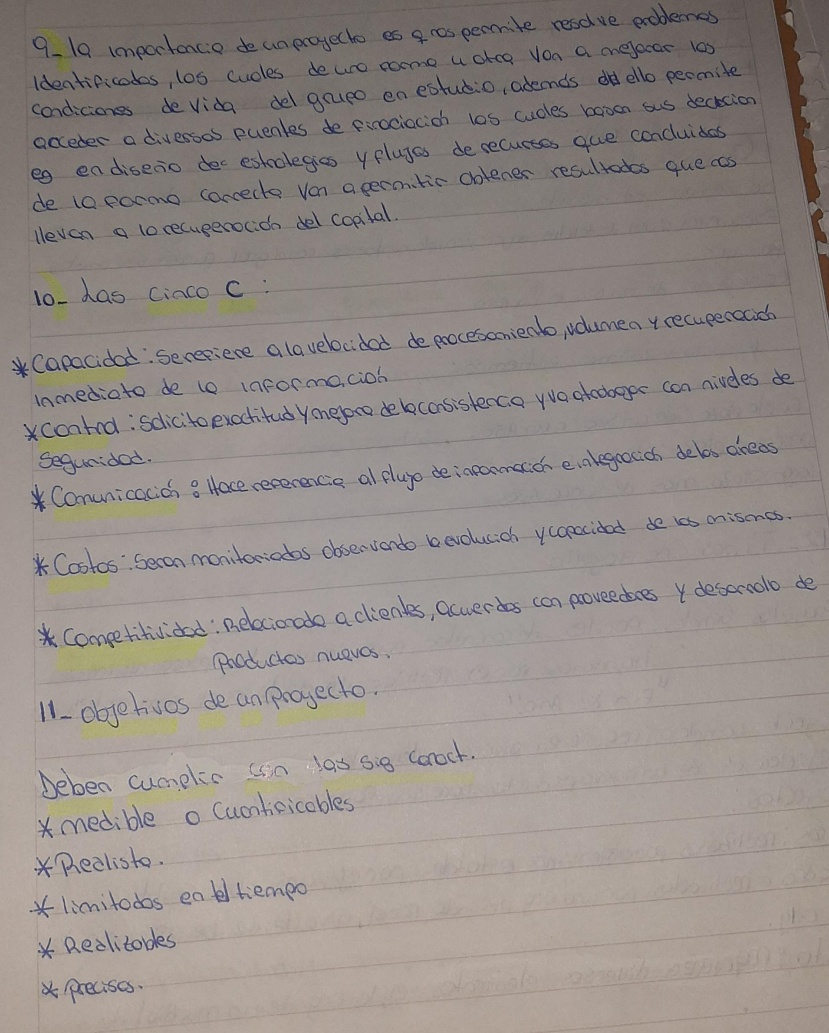 9- la importancia de un proyecto es q nos permite resolve problemas
Identificados, los cuales de una forma u otra van a mejorar las
condiciones de vida del grupo en estudio, además de ello permite
acceder a diversas fuentes de financiación los cuales basan sus decisión
en diseño de estrategias y flujos de recursos que concluidos
de la forma correcta van a permitir obtener resultados que nos
lleven a la recuperación del capital.
10- Las cinco C :
* Capacidad: Se refiere a la velocidad de procesamiento, volumen y recuperación
inmediata de la información
* Control: Solicita exactitud y mejora de la consistencia y va a trabajar con niveles de
Seguridad.
* Comunicación: Hace referencia al flujo de información e integración de las áreas
* Costos: Seran monitoriados observando la evolución y capacidad de los mismos.
* Competitividad: Relacionada a clientes, acuerdos con proveedores y desarrollo de
Productos nuevos.
11- objetivos de un Proyecto.
Deben cumplir con las sig caract.
* medible o Cuantificables
* Realista.
* limitados en el tiempo
* Realizables
* precisos.